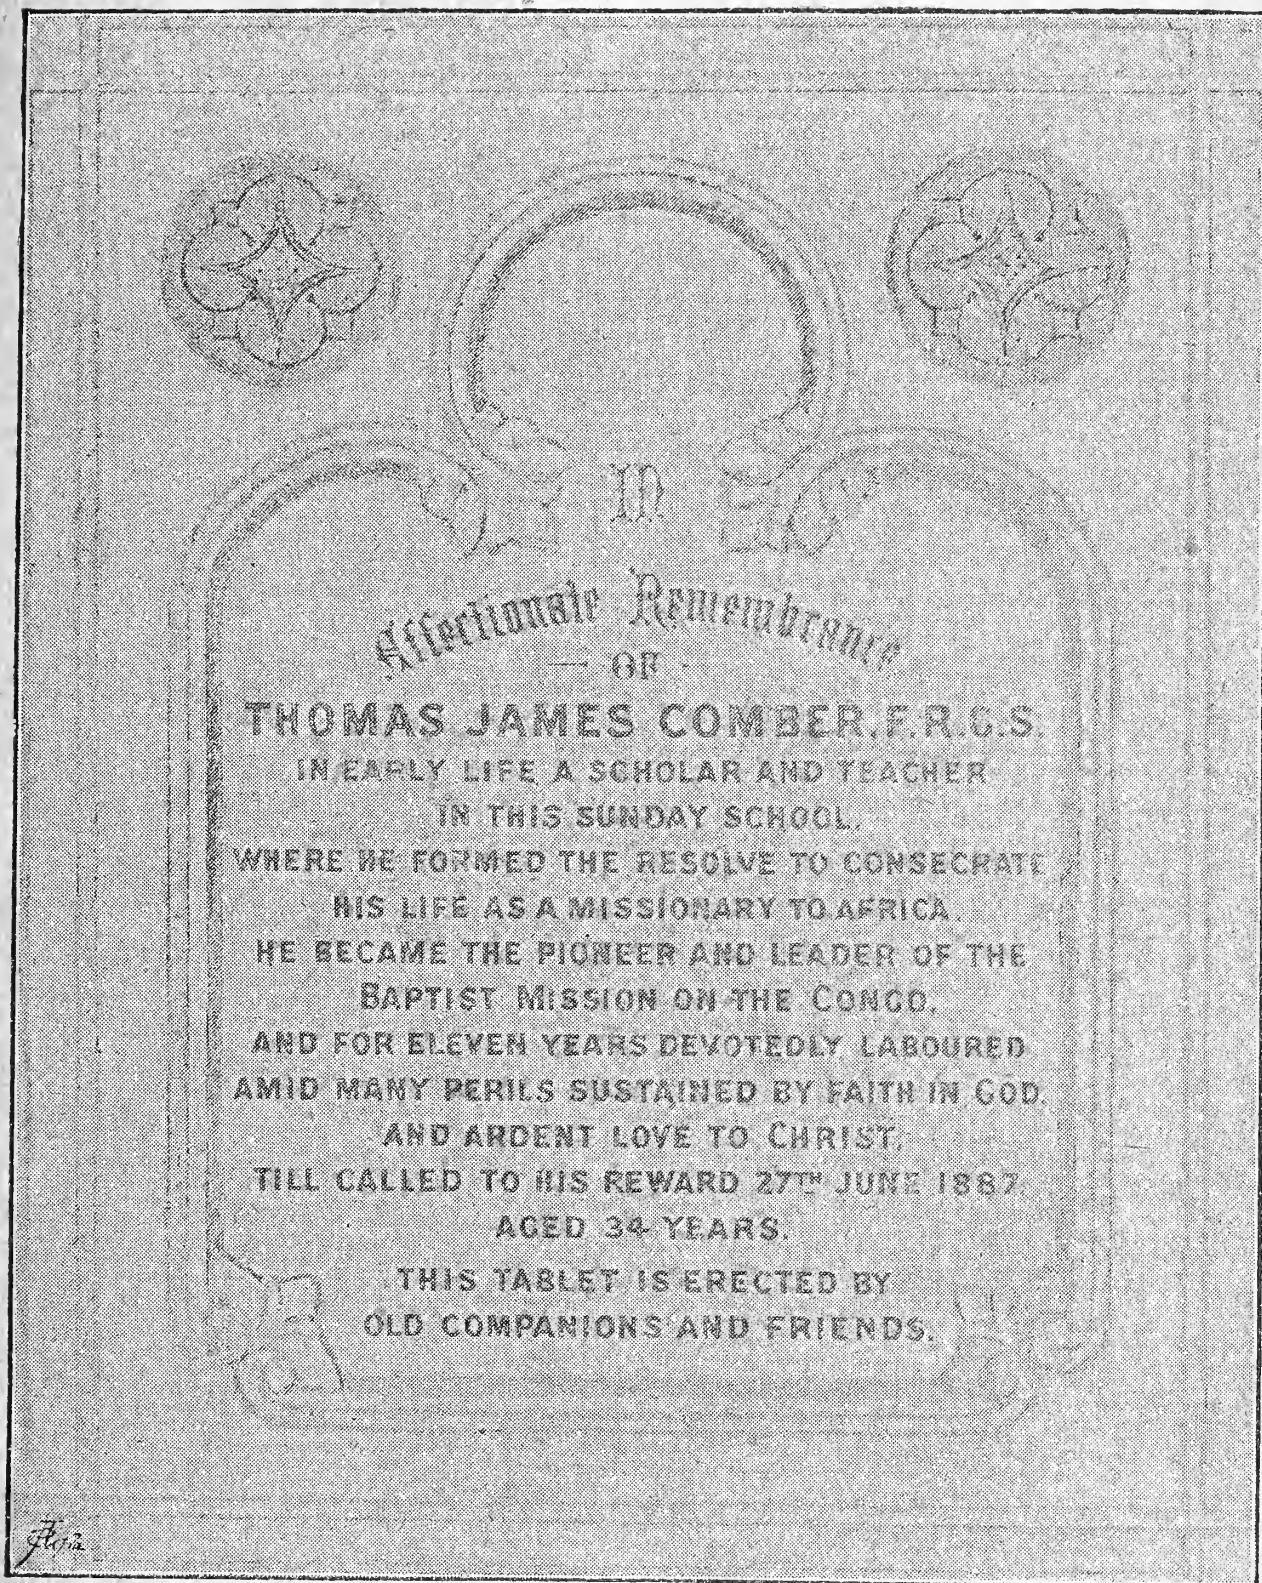 IN
Affectionate Remembrance
— OF -
THOMAS JAMES COMBER, F.R.G.S.
IN EARLY LIFE A SCHOLAR AND TEACHER
IN THIS SUNDAY SCHOOL.
WHERE HE FORMED THE RESOLVE TO CONSECRATE
HIS LIFE AS A MISSIONARY TO AFRICA.
HE BECAME THE PIONEER AND LEADER OF THE
BAPTIST MISSION ON THE CONGO,
AND FOR ELEVEN YEARS DEVOTEDLY LABOURED
AMID MANY PERILS SUSTAINED BY FAITH IN GOD.
AND ARDENT LOVE TO CHRIST,
TILL CALLED TO HIS REWARD 27TH JUNE 1887.
AGED 34 YEARS.
THIS TABLET IS ERECTED BY
OLD COMPANIONS AND FRIENDS.